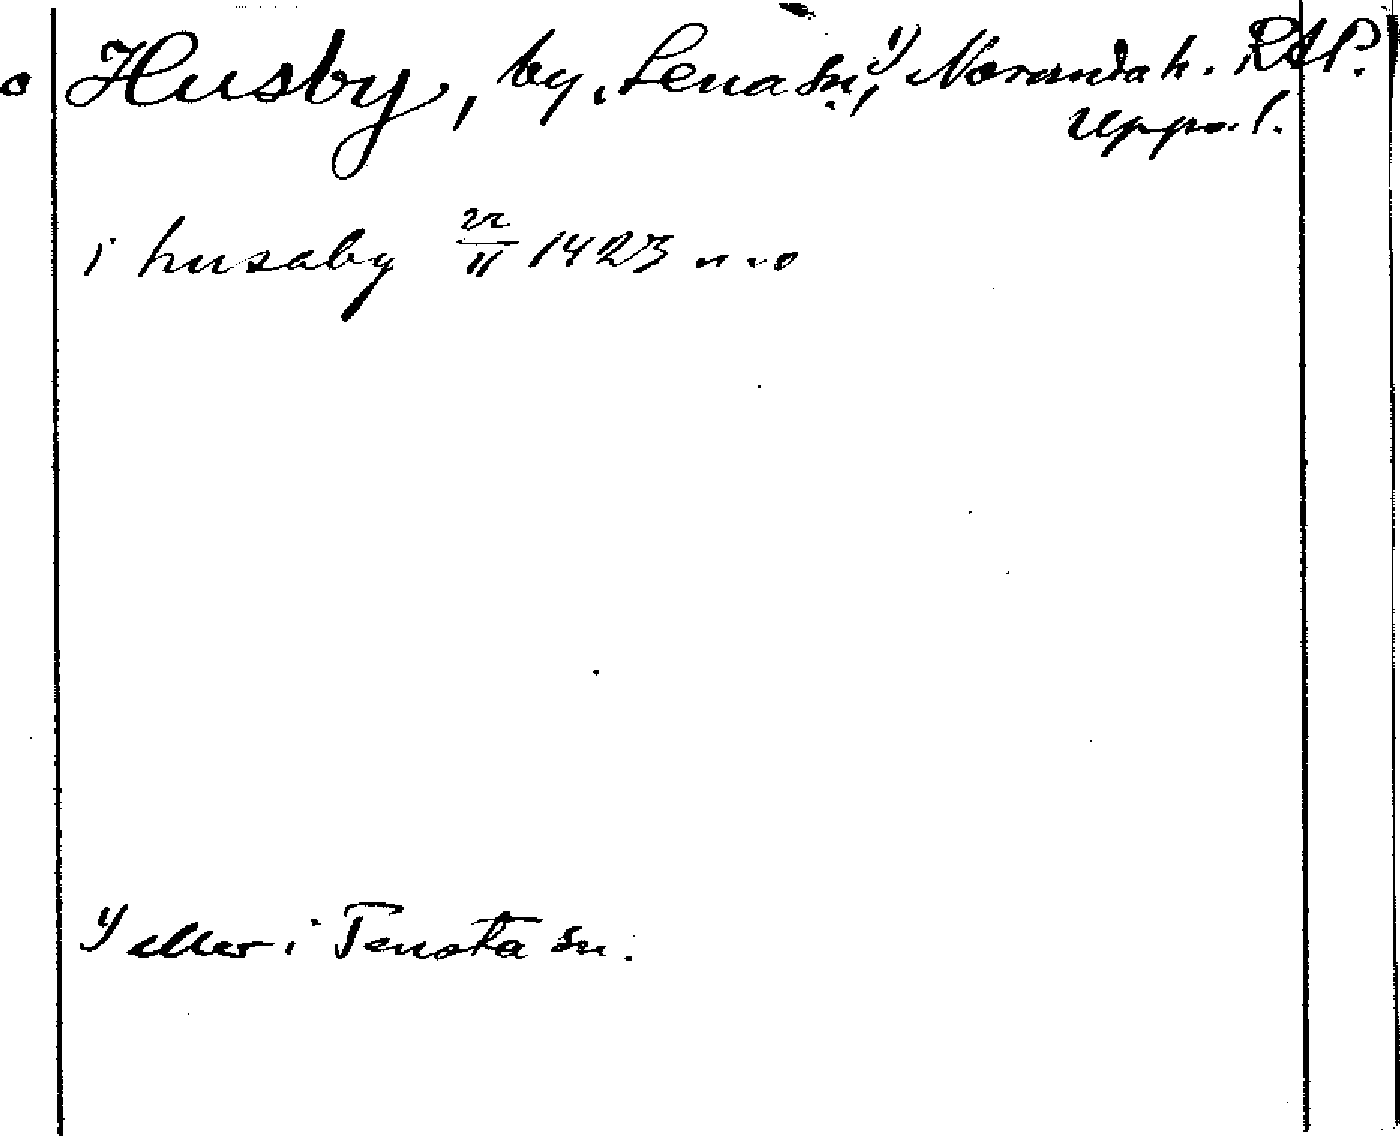 Husby, by, Lena sn,¹⁾ Norunda h. RAP.
Upps. l.
i husaby 22/11 1423 n. o
¹⁾ eller i Tensta sn.